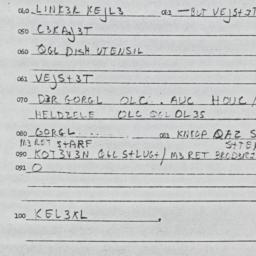 040 LINK3R KEJL3 043 —BUT VEJS+3T
050 C3KAJ3T
060 OGL DISH UTENSIL
061 VEJS+3T
070 D3R GORGL OLC. AUC HOUC /
HELDZELE OLC OGL OL3S
080 GORGL.... 083 KNIGP QAZ S
M3 RET S+ARF S+TE
090 KOT3V3N QGL S+LUG+/ M3 RET
091 O
100 KEL3XL.